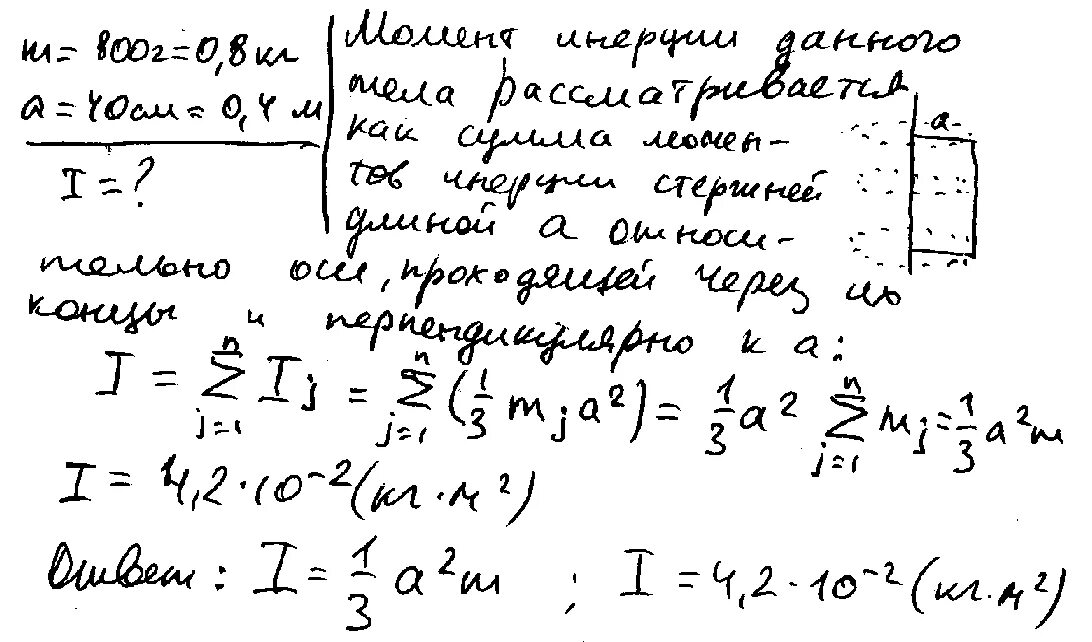 m = 800г = 0,8 кг
a = 40см = 0,4 м
I = ?
Момент инерции данного
тела рассматривается
как сумма момен-
тов инерции стержней
длиной a относи-
a
тельно оси, проходящей через их
концы и перпендикулярно к a:
I = \sum_{j=1}^{n} I_j = \sum_{j=1}^{n} (\frac{1}{3} m_j a^2) = \frac{1}{3} a^2 \sum_{j=1}^{n} m_j = \frac{1}{3} a^2 m
I = 4,2 · 10^{-2} (кг · м^2)
Ответ: I = \frac{1}{3} a^2 m ; I = 4,2 · 10^{-2} (кг · м^2)